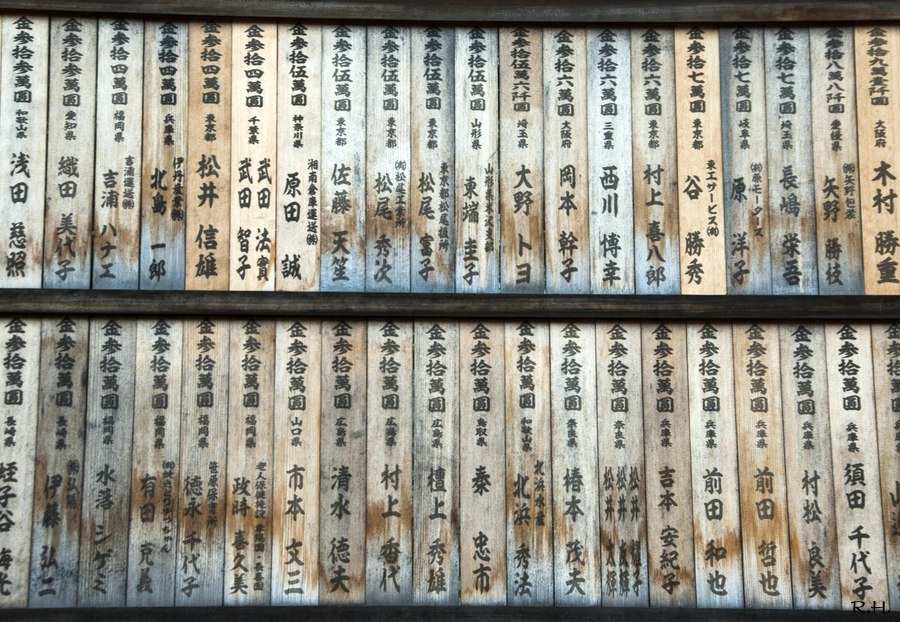 金参拾九萬壱阡圓 大阪府 木村 勝重
金参拾八萬八阡圓 愛媛県 矢野 勝枝
金参拾七萬圓 埼玉県 長嶋 栄吾
金参拾七萬圓 岐阜県 ㈲原モータース 原 洋子
金参拾七萬圓 東京都 東工サービス㈲ 谷 勝秀
金参拾六萬圓 東京都 村上 喜八郎
金参拾六萬圓 三重県 西川 博幸
金参拾六萬圓 大阪府 岡本 幹子
金参拾伍萬六阡圓 埼玉県 大野 トヨ
金参拾伍萬圓 山形県 東端 圭子
金参拾伍萬圓 東京都 松尾 富子
金参拾伍萬圓 東京都 ㈲松尾工業所 松尾 秀次
金参拾伍萬圓 東京都 佐藤 天笙
金参拾伍萬圓 神奈川県 湘南倉庫運送㈱ 原田 誠
金参拾四萬圓 千葉県 武田 法實 武田 智子
金参拾四萬圓 東京都 松井 信雄
金参拾四萬圓 兵庫県 伊丹産業㈱ 北島 一郎
金参拾四萬圓 福岡県 吉浦運送㈱ 吉浦 ハナエ
金参拾参萬圓 愛知県 織田 美代子
金参拾参萬圓 和歌山県 浅田 慈照
金参拾萬圓 兵庫県 須田 千代子
金参拾萬圓 兵庫県 村松 良美
金参拾萬圓 兵庫県 前田 哲也
金参拾萬圓 兵庫県 前田 和也
金参拾萬圓 兵庫県 吉本 安紀子
金参拾萬圓 奈良県 松井 松井 松井
金参拾萬圓 奈良県 椿本 茂夫
金参拾萬圓 和歌山県 北浜水産 北浜 秀法
金参拾萬圓 鳥取県 泰 忠市
金参拾萬圓 広島県 檀上 秀雄
金参拾萬圓 広島県 村上 香代
金参拾萬圓 広島県 清水 徳夫
金参拾萬圓 山口県 市本 文三
金参拾萬圓 福岡県 政時 喜久美
金参拾萬圓 福岡県 徳永 千代子
金参拾萬圓 福岡県 有田
金参拾萬圓 福岡県 水落 シゲミ
金参拾萬圓 長崎県 伊藤 弘二
金参拾萬圓 長崎県 蛭子谷
R.H.